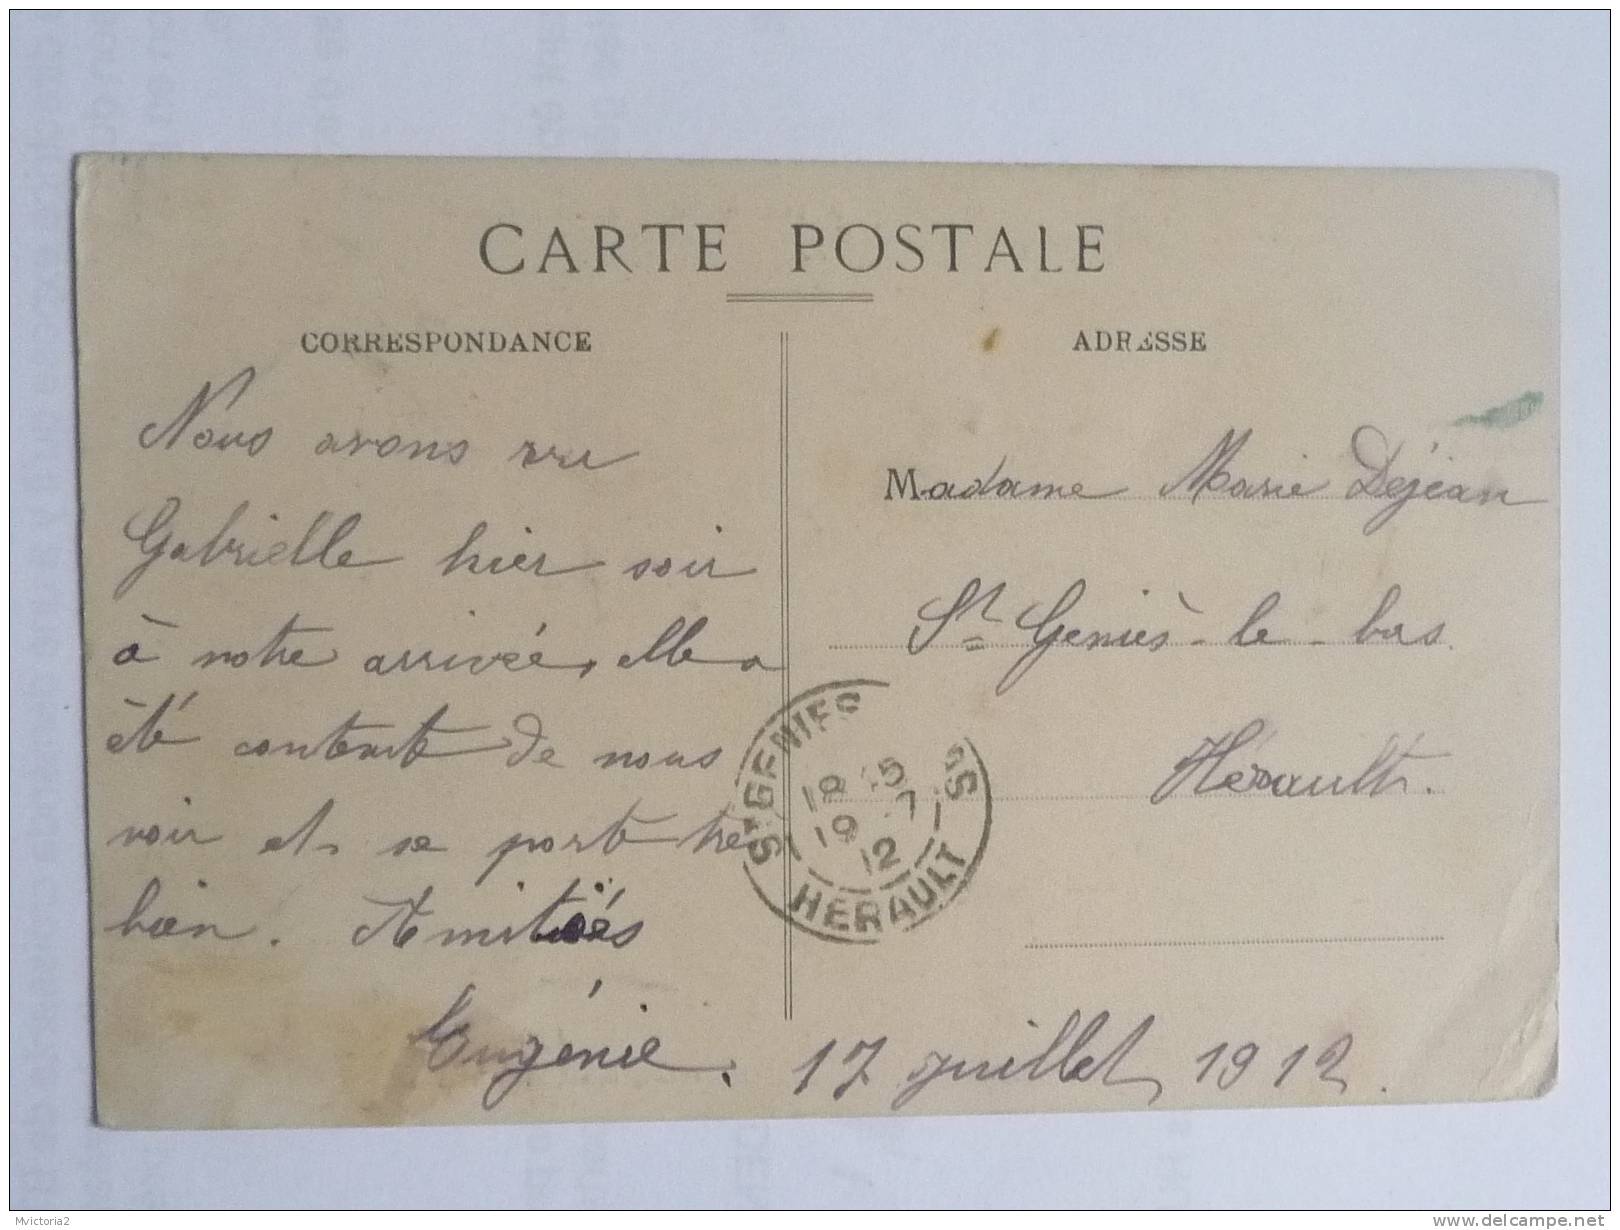 CARTE POSTALE
CORRESPONDANCE
Nous avons vu
Gabrielle hier soir
à notre arrivée, elle a
été contente de nous
voir et se porte très
bien. Amitiés
Eugénie.
17 juillet 1912.
ADRESSE
Madame Marie Déjean
St Geniès-le-bas.
Hérault.
ST GENIES
AS
18 15
19 -7
12
HERAULT
Mvictoria2
www.delcampe.net